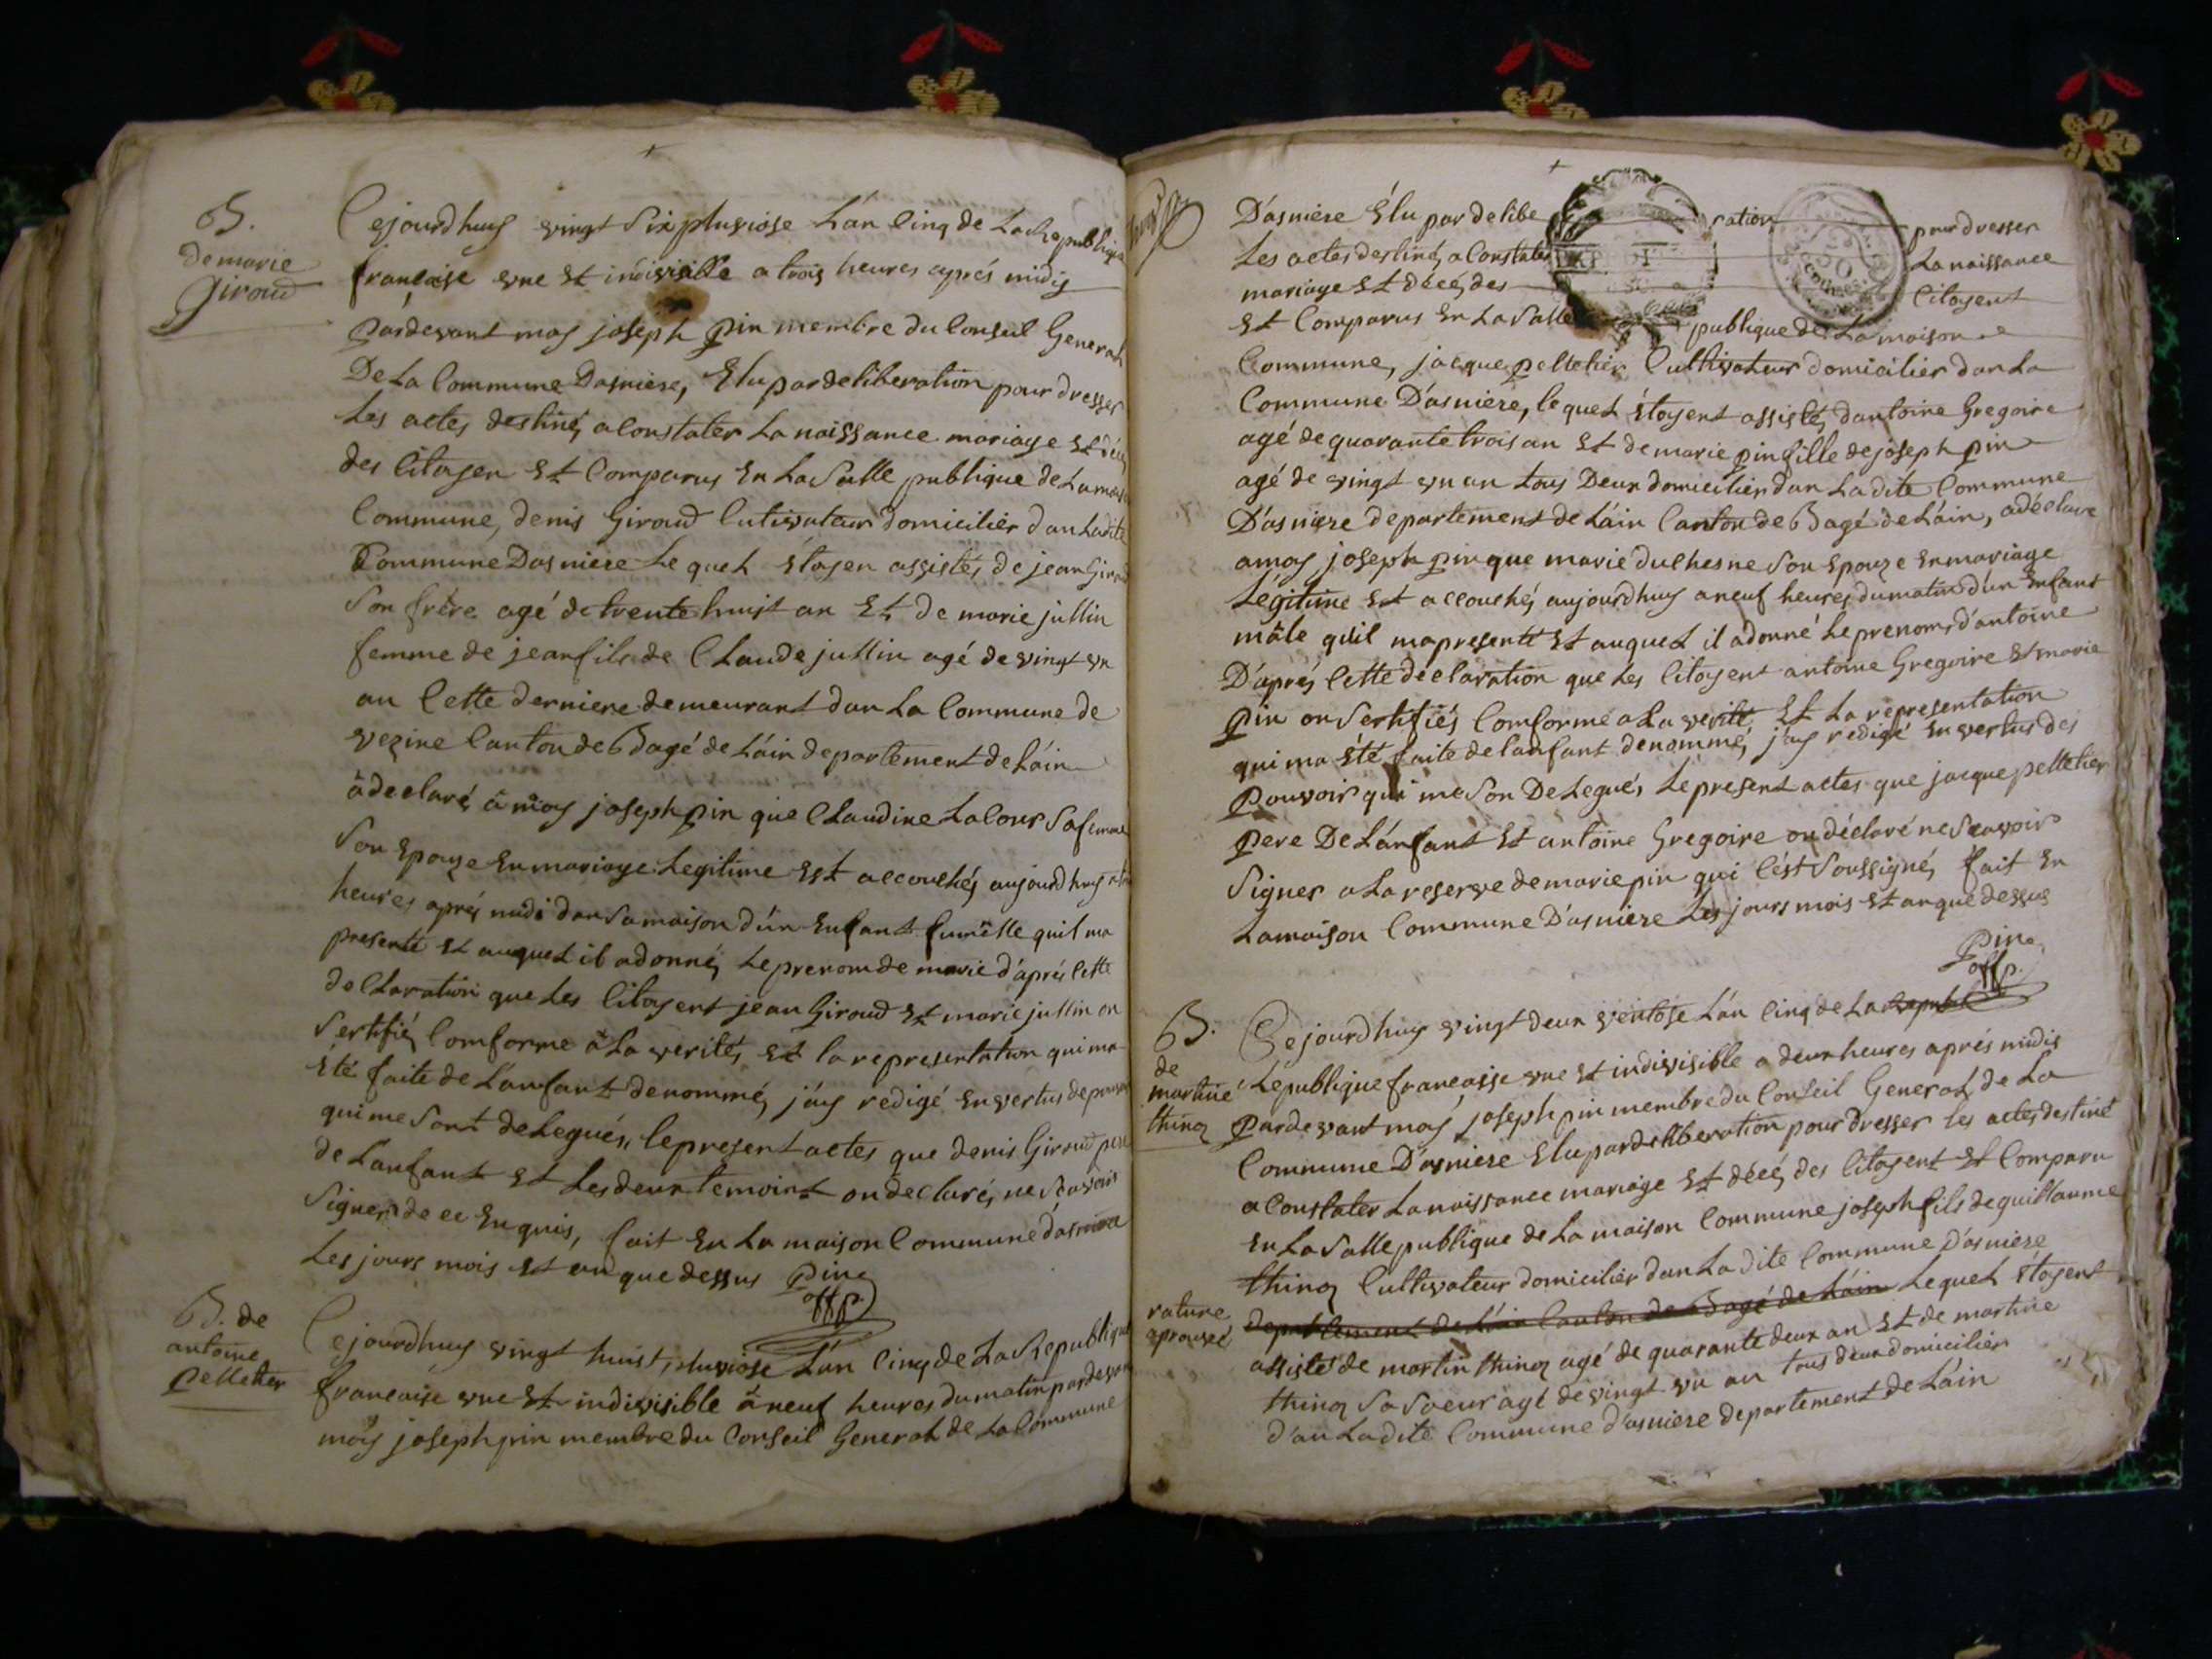 B.
de marie
Giroud
Cejourdhuy vingt Six pluviose L'án Cinq de La Republique
francaise vne Et indivisible a trois heures aprés midis
Pardevant moy joseph pin membre du Conseil General
De La Commune Dasniere, Elu par deliberation pour dresser
Les actes destinés a Constater La naissance mariage Et décé
des Citoyen Et Comparus En La Salle publique de La mais
Commune, denis Giroud Cutivateur domicilier dan Ladite
Commune Dasniere Lequel étoyen assistés de jean Giroud
Son frère agé de trente huit an Et de marie jullin
femme de jean fils de Claude jullin agé de vingt vn
an Cette derniere demeurant dan La Commune de
vezine Canton de Bagé de Láin departement de Láin
à declaré à moy joseph pin que Claudine La Cour Safemme
Son Epouze En mariage Legitime Est accouchés aujourdhuy
heures aprés midi dan Samaison d'ún Enfant fumêlle quil ma
presenté Et auquel il adonnés Le prenom de marie d'áprés Cette
declaration que Les Citoyent jean Giroud Et marie jullin on
Sertifiés Comforme à La verités Et la representation qui ma
été faite de Lanfant denommés jáy redigé En vertus de
qui me Sont delegués, le present actes que denis Giroud pere
de Lanfant Et Les deux temoint on declarés ne Scavoir
Signer de ce Enquis, fait En La maison Commune dasniere
Les jours mois Et an que dessus Pin
off p.
B. de
antoine
Pelletier
Cejourdhuy vingt huit pluviose L'án Cinq de La Republique
francaise vne Et indivisible à neuf heures du matin pardevan
moy joseph pin membre du Conseil General de La Commune
D'asniere Elu par delibe ration pour dresser
Les actes destinés a Constater La naissance
mariage Et décés des Citoyent
Et Comparus En La Salle publique de La maison
Commune, jacque pelletier Cultivateur domicilier dan La
Commune D'asniere, lequel étoyent assistés dantoine Gregoire
agé de quarante trois an Et de marie pin fille de joseph pin
agé de vingt vn an tous Deux domicilier dan La dite Commune
D'asniere departement de Láin Canton de Bagé de Láin, a déclare
a moy joseph pin que marie duchesne Son Epouze En mariage
Légitime Est accouchés aujourdhuy a neuf heures du matin d'un Enfant
mâle quil ma presenté Et auquel il adonné Le prenoms d'antoine
D'áprés Cette déclaration que Les Citoyent antoine Gregoire Et marie
Pin on Sertifiés Comforme a La verité Et La representation
qui ma été faite de Lanfant denommés jáy redigé En vertus des
Pouvoir qui me Son Delegués Le present actes que jacque pelletier
Pere De Lánfant Et antoine Gregoire on déclaré ne Scavoir
Signer a La reserve de marie pin qui Cést Soussigné, fait En
La maison Commune D'asniere Les jours mois Et an que dessus
Pin
off p.
B.
de
martine
thinon
Cejourdhuy vingt deux ventose L'án Cinq de La Republ
Republique francaisse vne Et indivisible a deux heures aprés midis
Pardevant moy joseph pin membre du Conseil General de La
Commune D'asniere Elu par deliberation pour dresser les actes destinét
a Constater La naissance mariage Et décés des Citoyent Et Comparu
En La Salle publique de La maison Commune joseph fils de guillaume
thinon Cultivateur domicilier dan La dite Commune D'asniere
rature
aprouvé
departement de Láin Canton de Bagé de Láin Lequel étoyent
assisté de martin thinon agé de quarante deux an Et de martine
thinon Sa Soeur agé de vingt vn an tous deux domicilier
d'an La dite Commune d'asniere departement de Láin